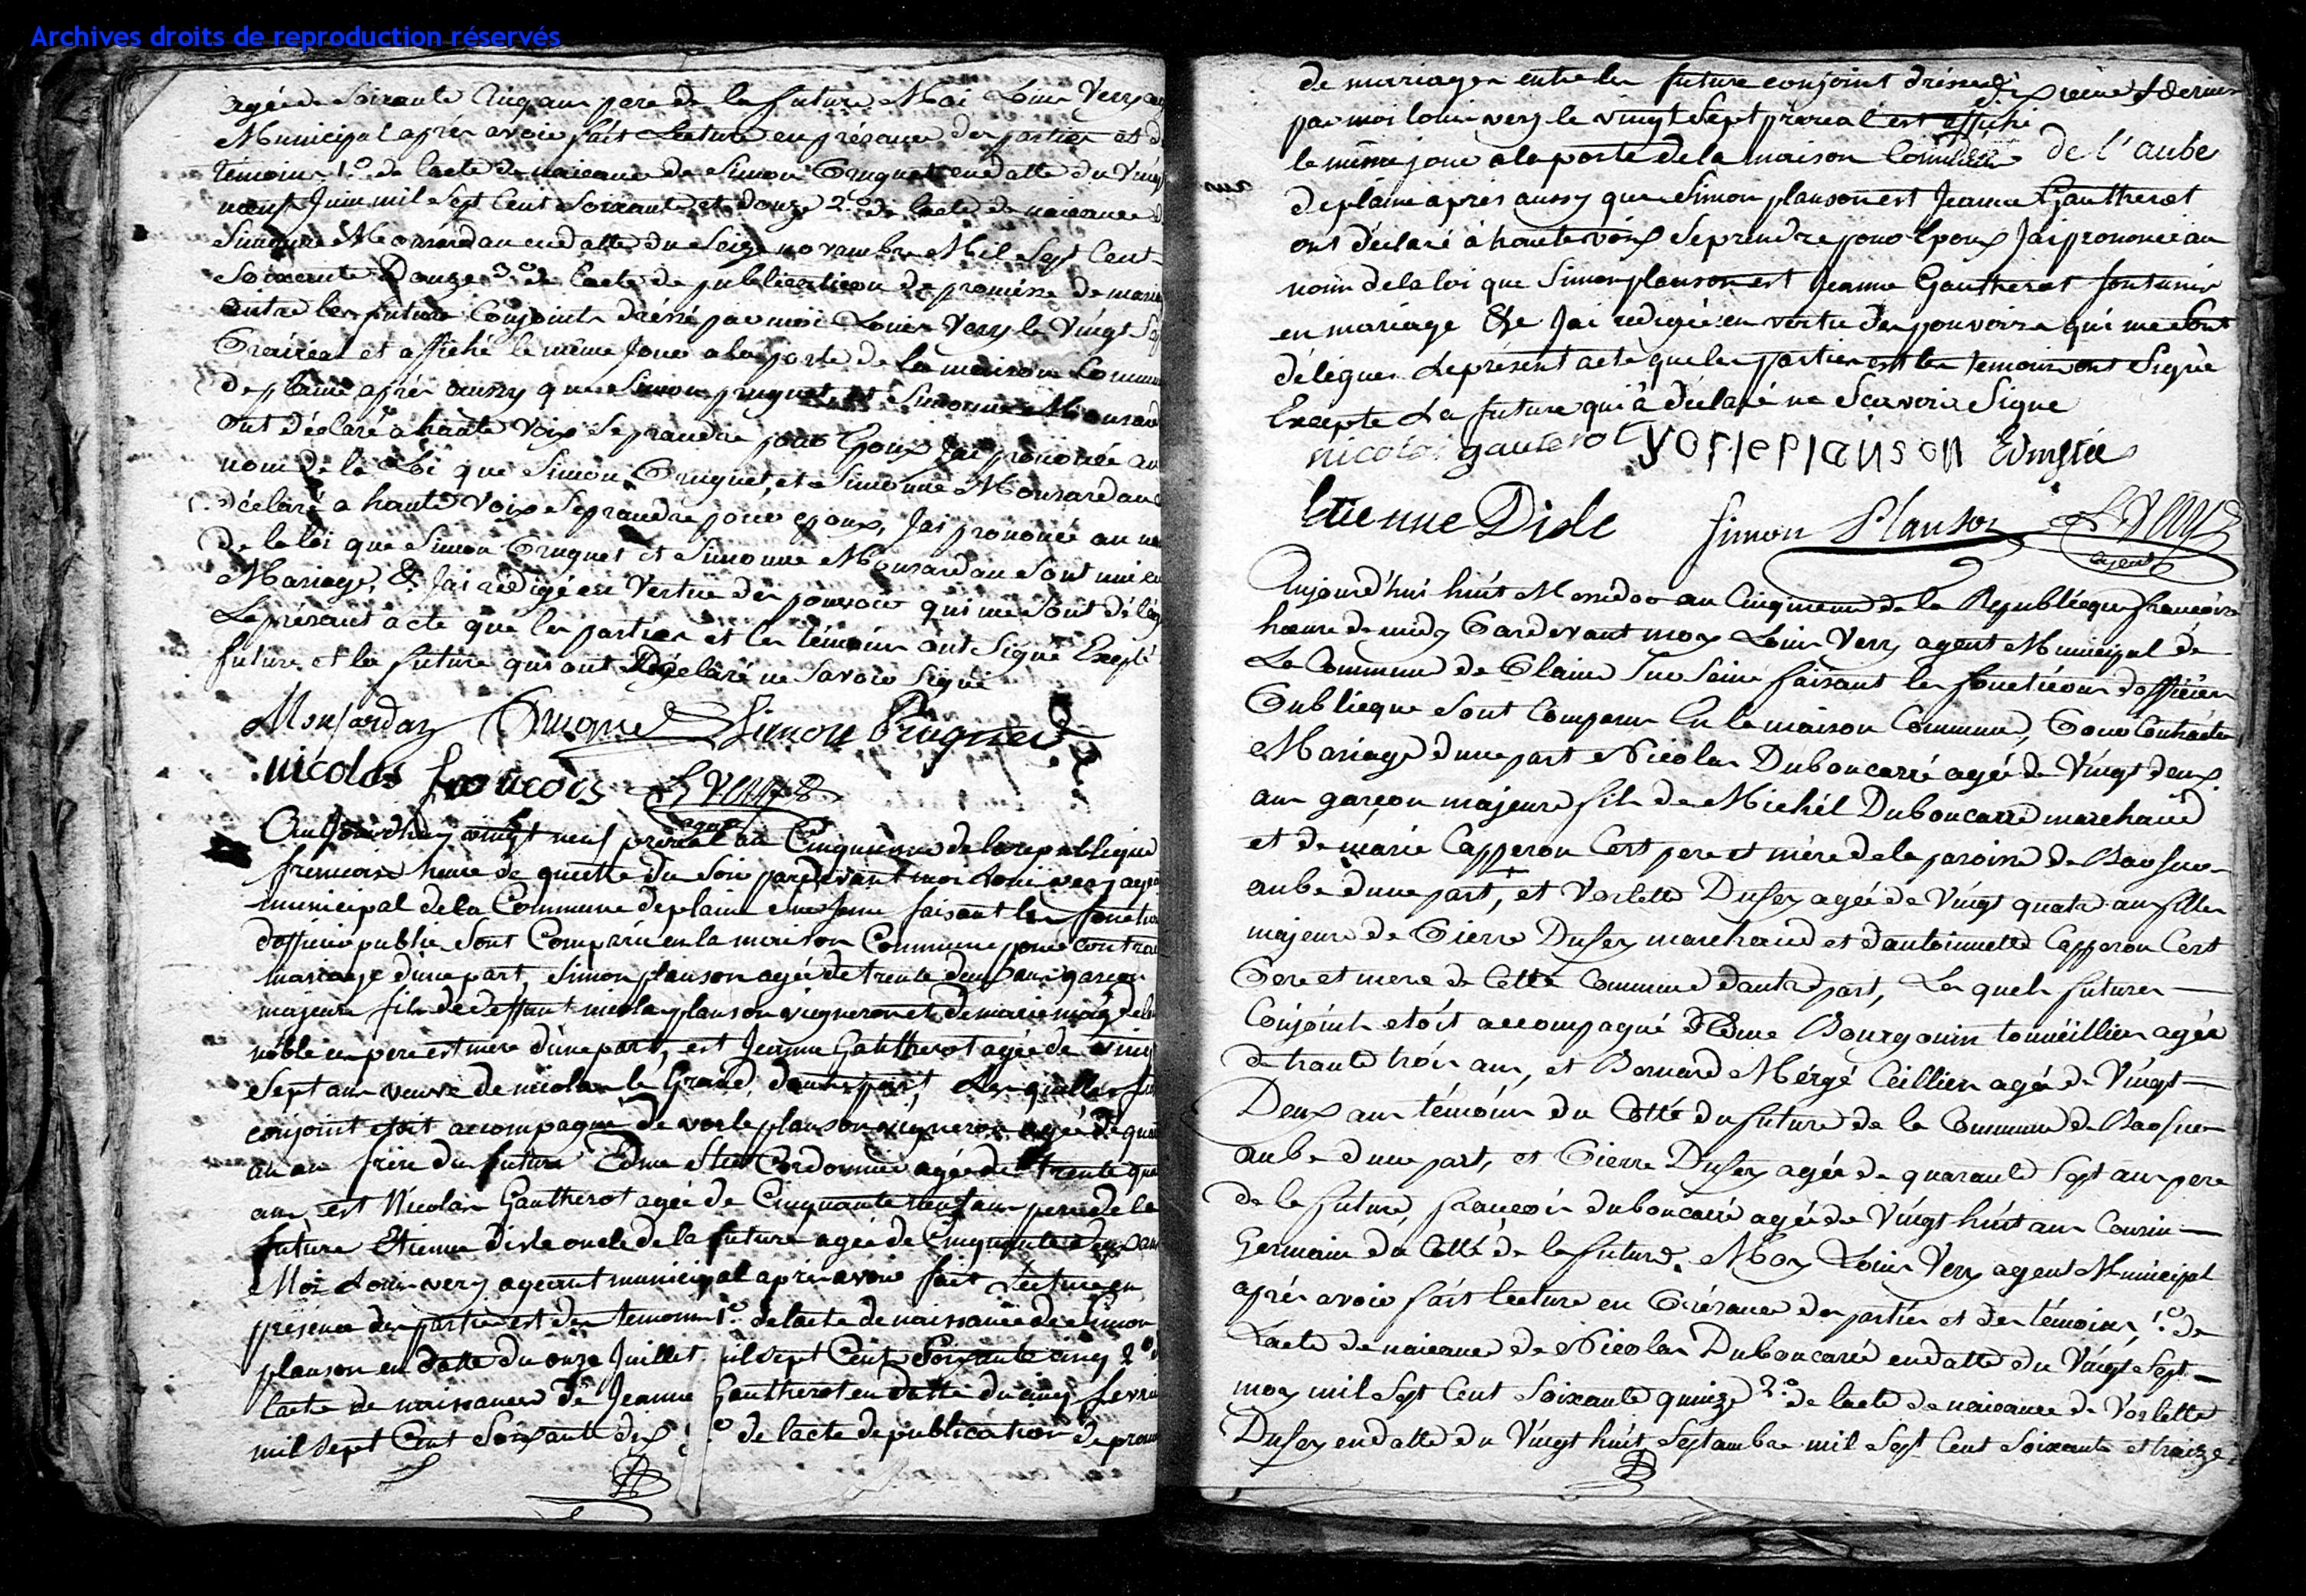 Archives droits de reproduction réservés
agée de Soixante Cinq ans pere de la future Moi Louis Very
Municipal après avoir fait Lecture en présance des parties et d
témoins 1.o de lacte de naicance de Simon Prugnet en datte du Vingt
neuf Juin mil Sept Cent Soixante et douze 2.o de lacte de naicance d
Simonne Monsardau en datte du Seize novambre Mil Sept Cent
Soixante Douze 3.o de lacte de publication de promesse de maria
entre les future Conjoints dréssé par moi Louis Very le Vingt Sep
Prairéal et affiché le même Jour a la porte de la maison Commun
de plaine après aussy que Simon prugnet et Simonne Monsard
ont déclaré a haute Voix Se prandre pour Epoux Jai prononcé au
nom de la Loi que Simon Prugnet, et Simonne Monsardau
déclaré a haute Voix Se prandre pour epoux, Jai prononcé au n
de la loi que Simon Prugnet et Simonne Monsardau Sont unie en
Mariage, & Jai rédigé en Vertue des pouvoir qui me Sont délég
Le présant acte que les parties et les témoins ont Signé Excepté
future et la future qui ont Déclaré ne Savoir Signé
Monsardaz Prugnet Simon Prugnet
nicolas francois L Very
agent
Aujourdhuy vingt neuf preréal an Cinquieme de la republique
francoise heure de quatte du Soir pardevant moi Louis very agen
municipal de la Commune de plaine Sur Seine faisant les fonction
dofficié public Sont Comparu en la maison Commune pour contrac
mariange d'une part, Simon planson agée de trente deux ans garcon
majeure fils de deffunt nicolas planson vigneron et de marie magdel
noble ces pere est mere d'une part, est Jeanne Gautherot agée de Vingt
Sept ans veuve de nicolas le Grand, dautre part, Les quelles fu
conjoint etoit accompagné de vorle planson vigneron agée de quar
an ans frere du future Edme Cordonnie agée de trente qua
ans, est Nicolas Gautherot agée de Cinquante neuf ans pere de la
future Etienne disle oncle de la future agée de Cinquante deux ans
Moi Louis very ageant municipal apres avoir fait Lecture en
présence des partie est des temoins 1.o de lacte de naissance de Simon
planson en datte du onze Juillet mil Sept Cent Soixante cinq 2.o d
lacte de naissance de Jeanne Gautherot en datte du cinq fevrie
mil Sept Cent Soixante dix 3.o de lacte de publication de prom
de mariage entre les future conjoint dréssé
par moi louis very le vingt Sept preréal est affiché
le même jour a la porte de la maison Commune de l'aube
de plaine après aussy que Simon planson est Jeanne Gautherot
ont déclaré à haute voix Se prendre pour Epoux Jai prononcé au
nom de la loi que Simon planson est Jeanne Gautherot Sont unis
en mariage & Jai redigé en vertu des pouvoirs qui me Sont
délégues Le présent acte que les parties est les temoins ont Signé
Excepte La future qui a déclaré ne Scavoir Signe
nicolas gauterot vorle planson
Etienne Disle Simon Planson L Very
agent
Aujourd'hui huit Messidor an Cinquieme de la Republicque francoise
heure de midy Pardevant moy Louis Very agent Municipal de
La Commune de Plaine Sur Seine faisant les fonctions dofficier
Publicque Sont Comparu En la maison Commune, Pour Contracter
Mariage d'une part Nicolas Duboucarré agée de Vingt deux
ans garçon majeure fils de Michél Duboucarré marchand
et de marie Capperon Cest pere et mère de la paroisse de Bar Sur
aube d'une part, et Vorlette Dufey agée de Vingt quatre ans fille
majeure de Pierre Dufey marchand et d'antoinnette Capperon Cest
Pere et mere de Cette Commune dautre part, Les quels futures
Conjoints etoit accompagné d'Edme Bourgouin tonnéillier agée
de trante trois ans, et Bernard Mérgé agée de Vingt
Deux ans témoins du Cotté du future de la Commune de Bar Sur
aube d'une part, et Pierre Dufey agée de quarante Sept ans pere
de la future, francois duboucarré agée de Vingt huit ans Cousin
Germain du Cotté de la future. Moy Louis Very agent Municipal
après avoir fait lecture en Présance des parties et des témoins, 1.o de
Lacte de naicance de Nicolas Duboucarré en datte du Vingt Sept
moy mil Sept Cent Soixante quinze 2.o de lacte de naicance de Vorlette
Dufey en datte du Vingt huit Septambre mil Sept Cent Soixante et traize